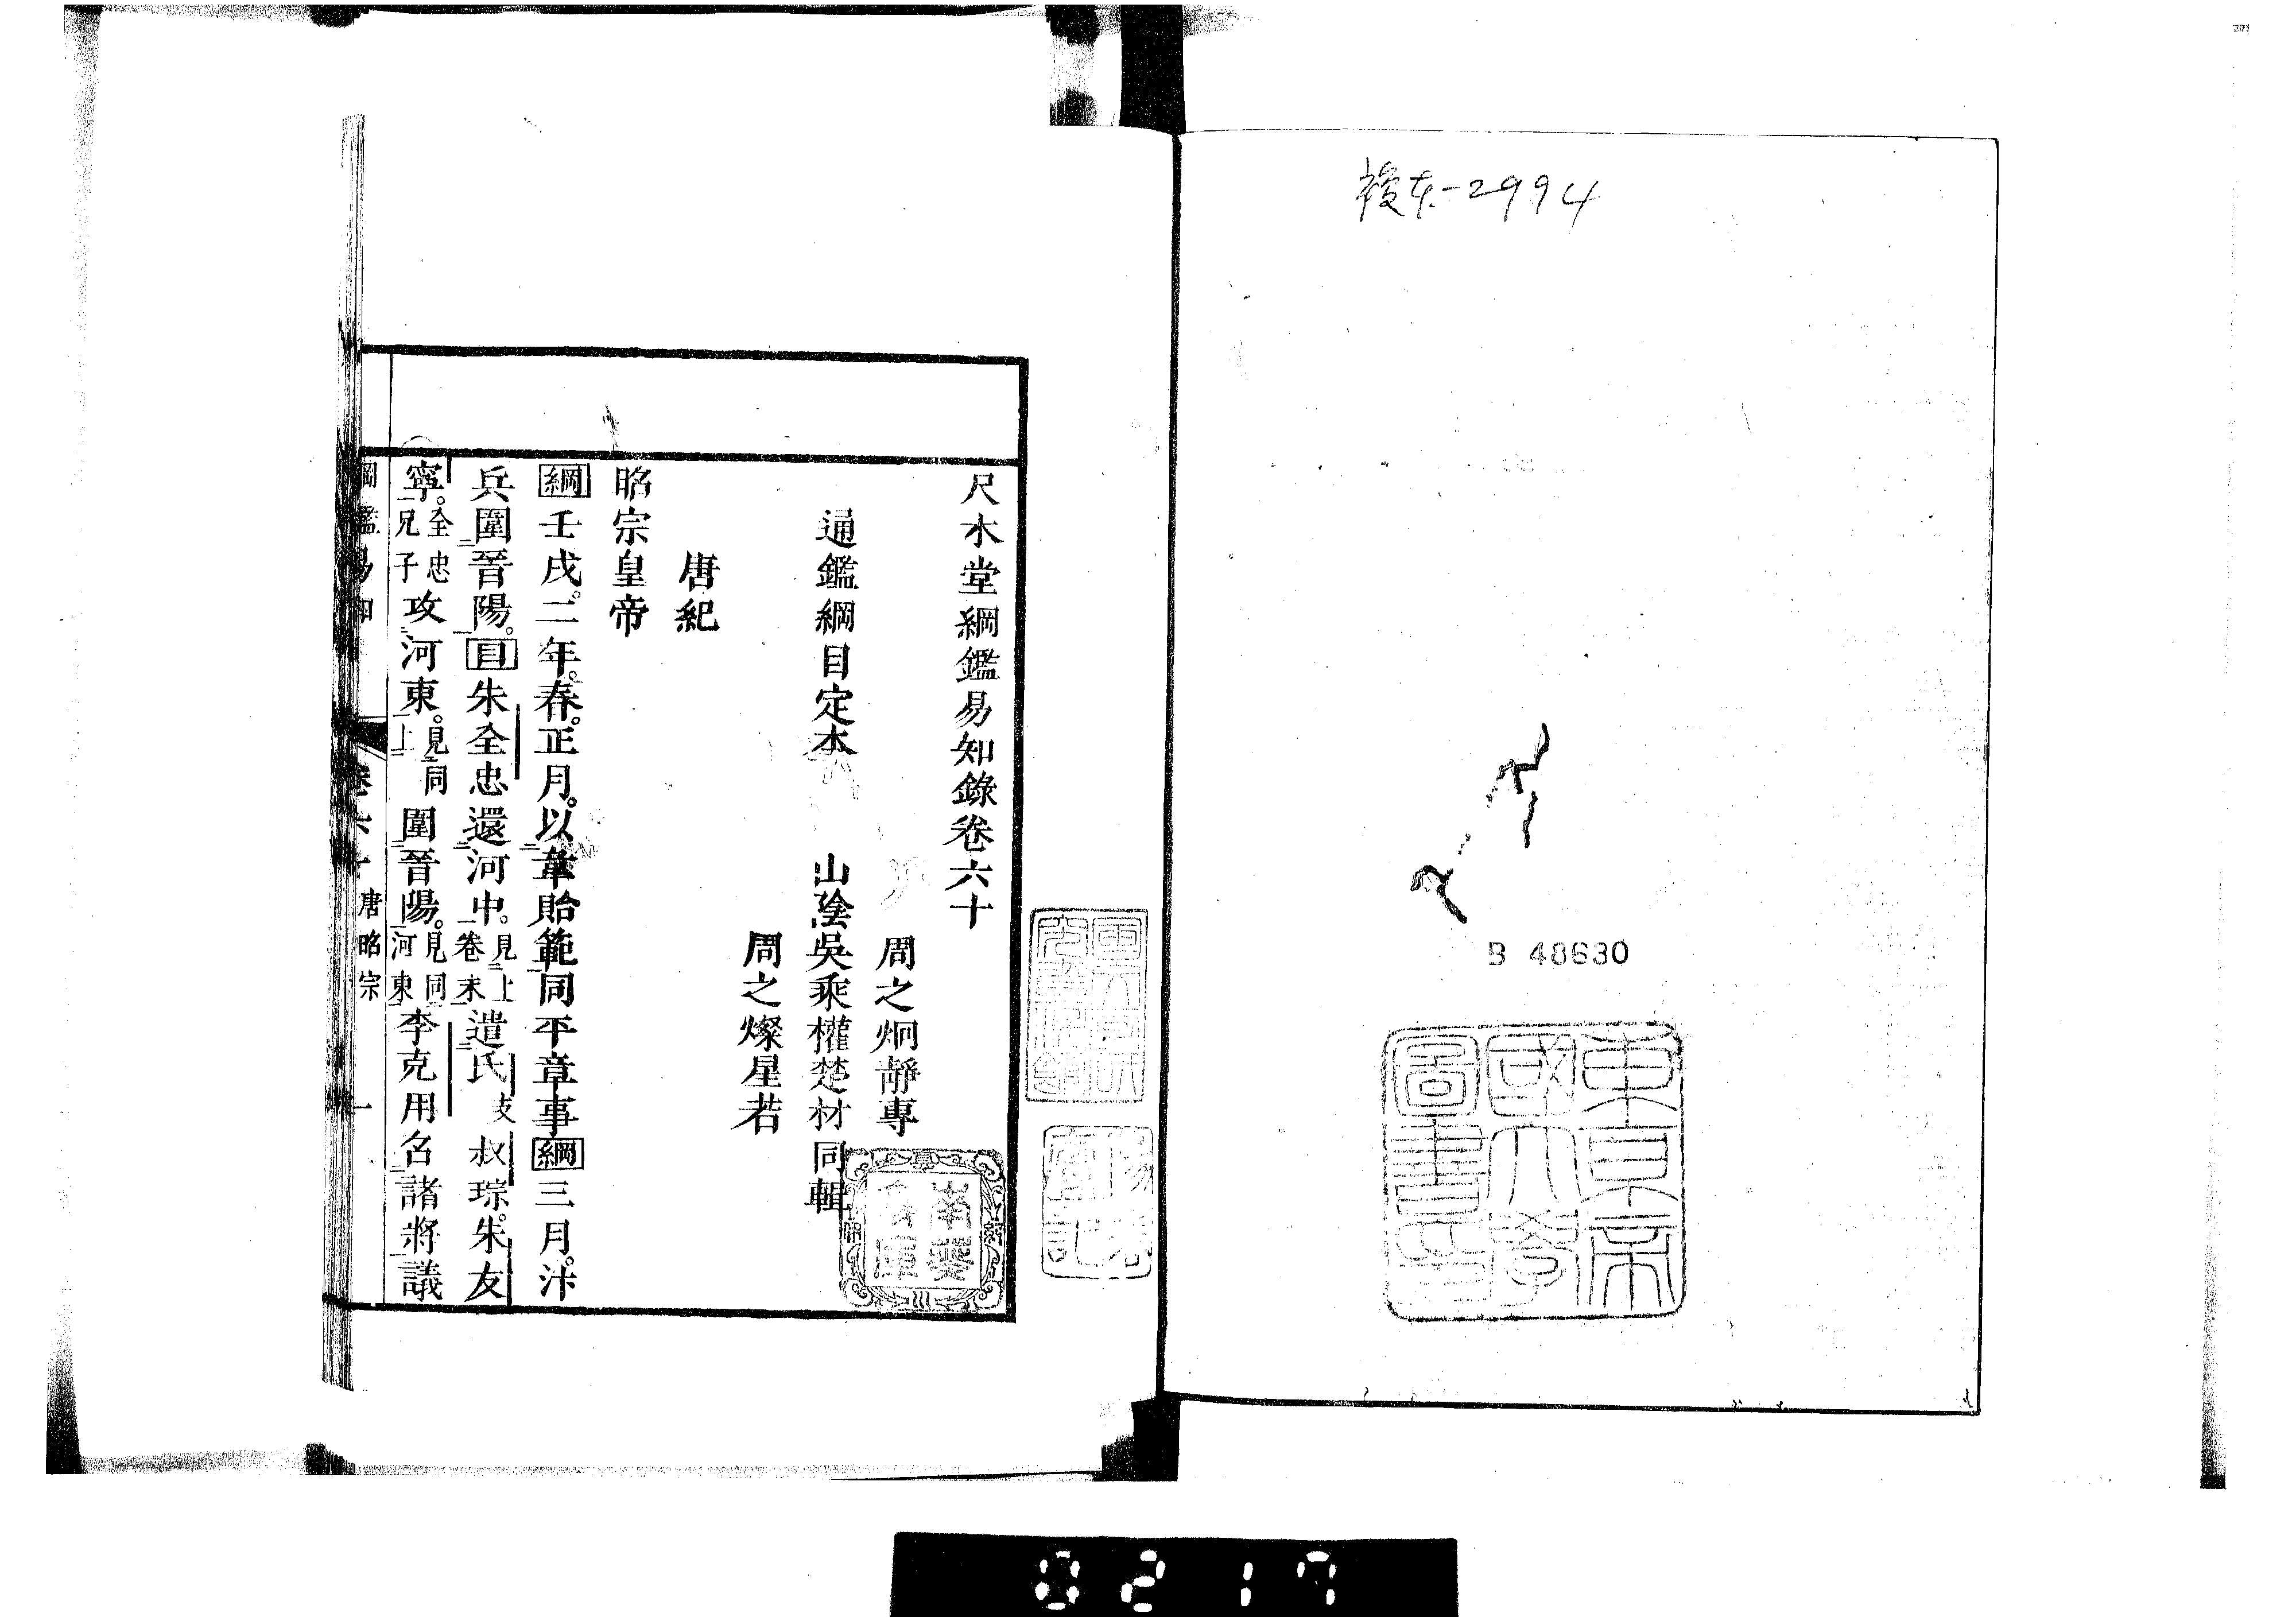 複东-2994
B 48630
東京帝
國大學
圖書印
尺木堂綱鑑易知錄卷六十
周之炯靜專
通鑑綱目定本 山陰吳乘權楚材同輯
周之燦星若
唐紀
昭宗皇帝
綱壬戌。二年。春。正月。以韋貽範同平章事綱三月。汴
兵圍晉陽。目朱全忠還河中。見上卷末遣氏支叔琮。朱友
寧。全忠兄子攻河東。見同上圍晉陽。見同河東李克用召諸將議
綱鑑易知 卷六十 唐昭宗 一
0217